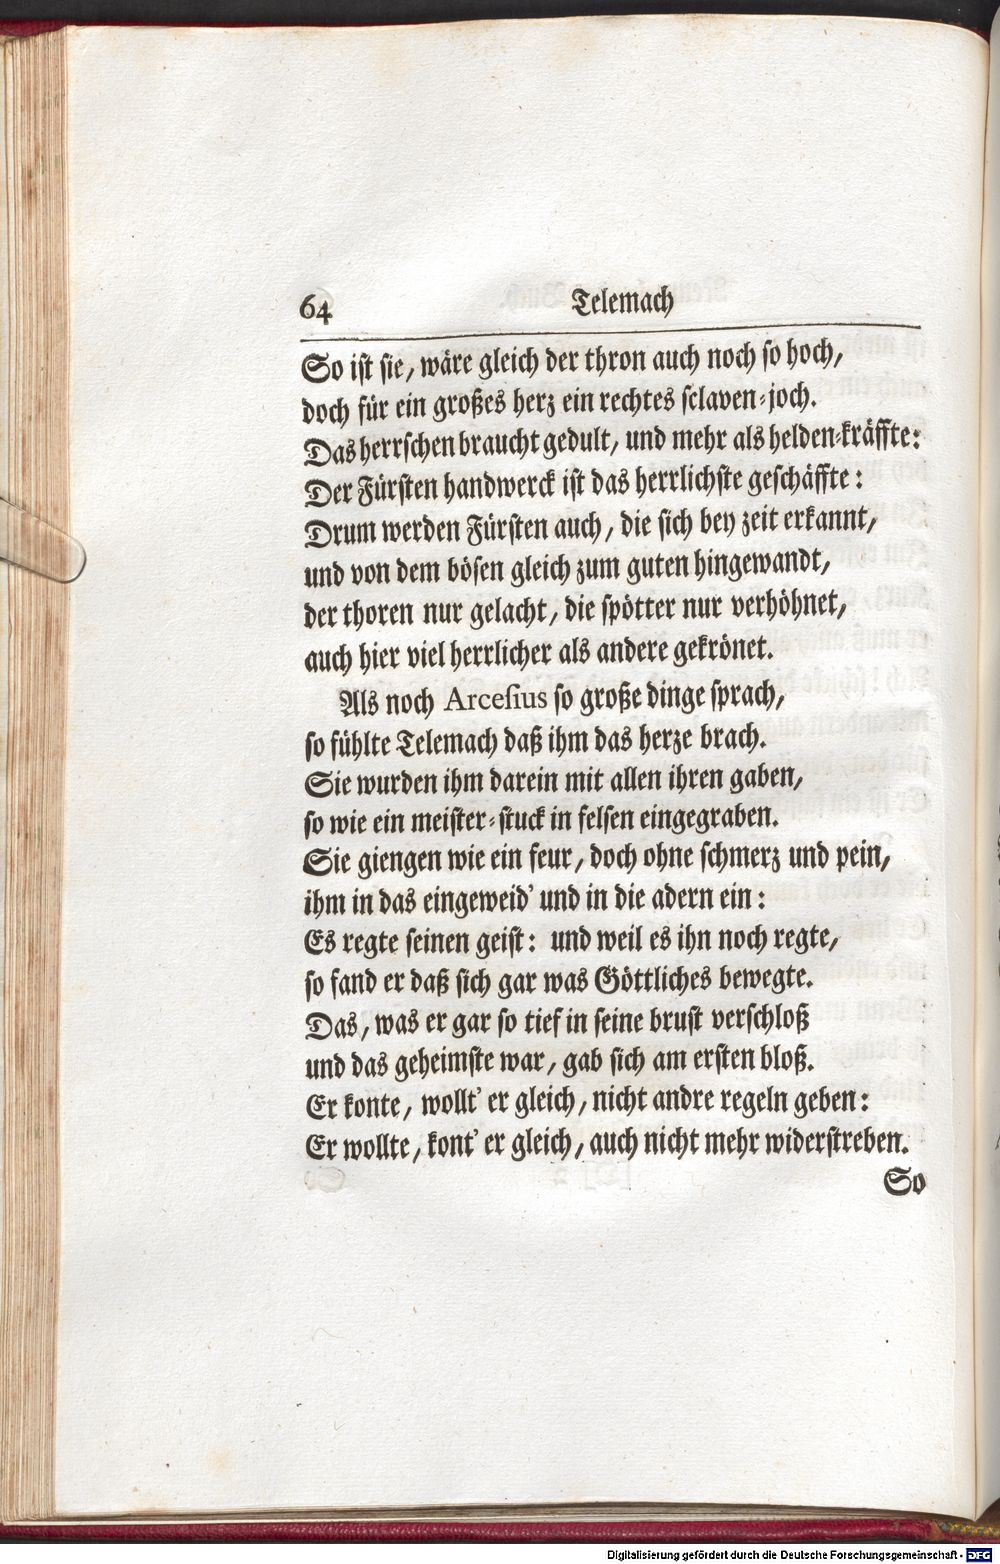 64 Telemach
So ist sie, wäre gleich der thron auch noch so hoch,
doch für ein großes herz ein rechtes sclaven-joch.
Das herrschen braucht gedult, und mehr als helden-kräffte:
Der Fürsten handwerck ist das herrlichste geschäffte:
Drum werden Fürsten auch, die sich bey zeit erkannt,
und von dem bösen gleich zum guten hingewandt,
der thoren nur gelacht, die spötter nur verhöhnet,
auch hier viel herrlicher als andere gekrönet.
Als noch Arcesius so große dinge sprach,
so fühlte Telemach daß ihm das herze brach.
Sie wurden ihm darein mit allen ihren gaben,
so wie ein meister-stuck in felsen eingegraben.
Sie giengen wie ein feur, doch ohne schmerz und pein,
ihm in das eingeweid' und in die adern ein:
Es regte seinen geist: und weil es ihn noch regte,
so fand er daß sich gar was Göttliches bewegte.
Das, was er gar so tief in seine brust verschloß
und das geheimste war, gab sich am ersten bloß.
Er konte, wollt' er gleich, nicht andre regeln geben:
Er wollte, kont' er gleich, auch nicht mehr widerstreben.
So
Digitalisierung gefördert durch die Deutsche Forschungsgemeinschaft - DFG